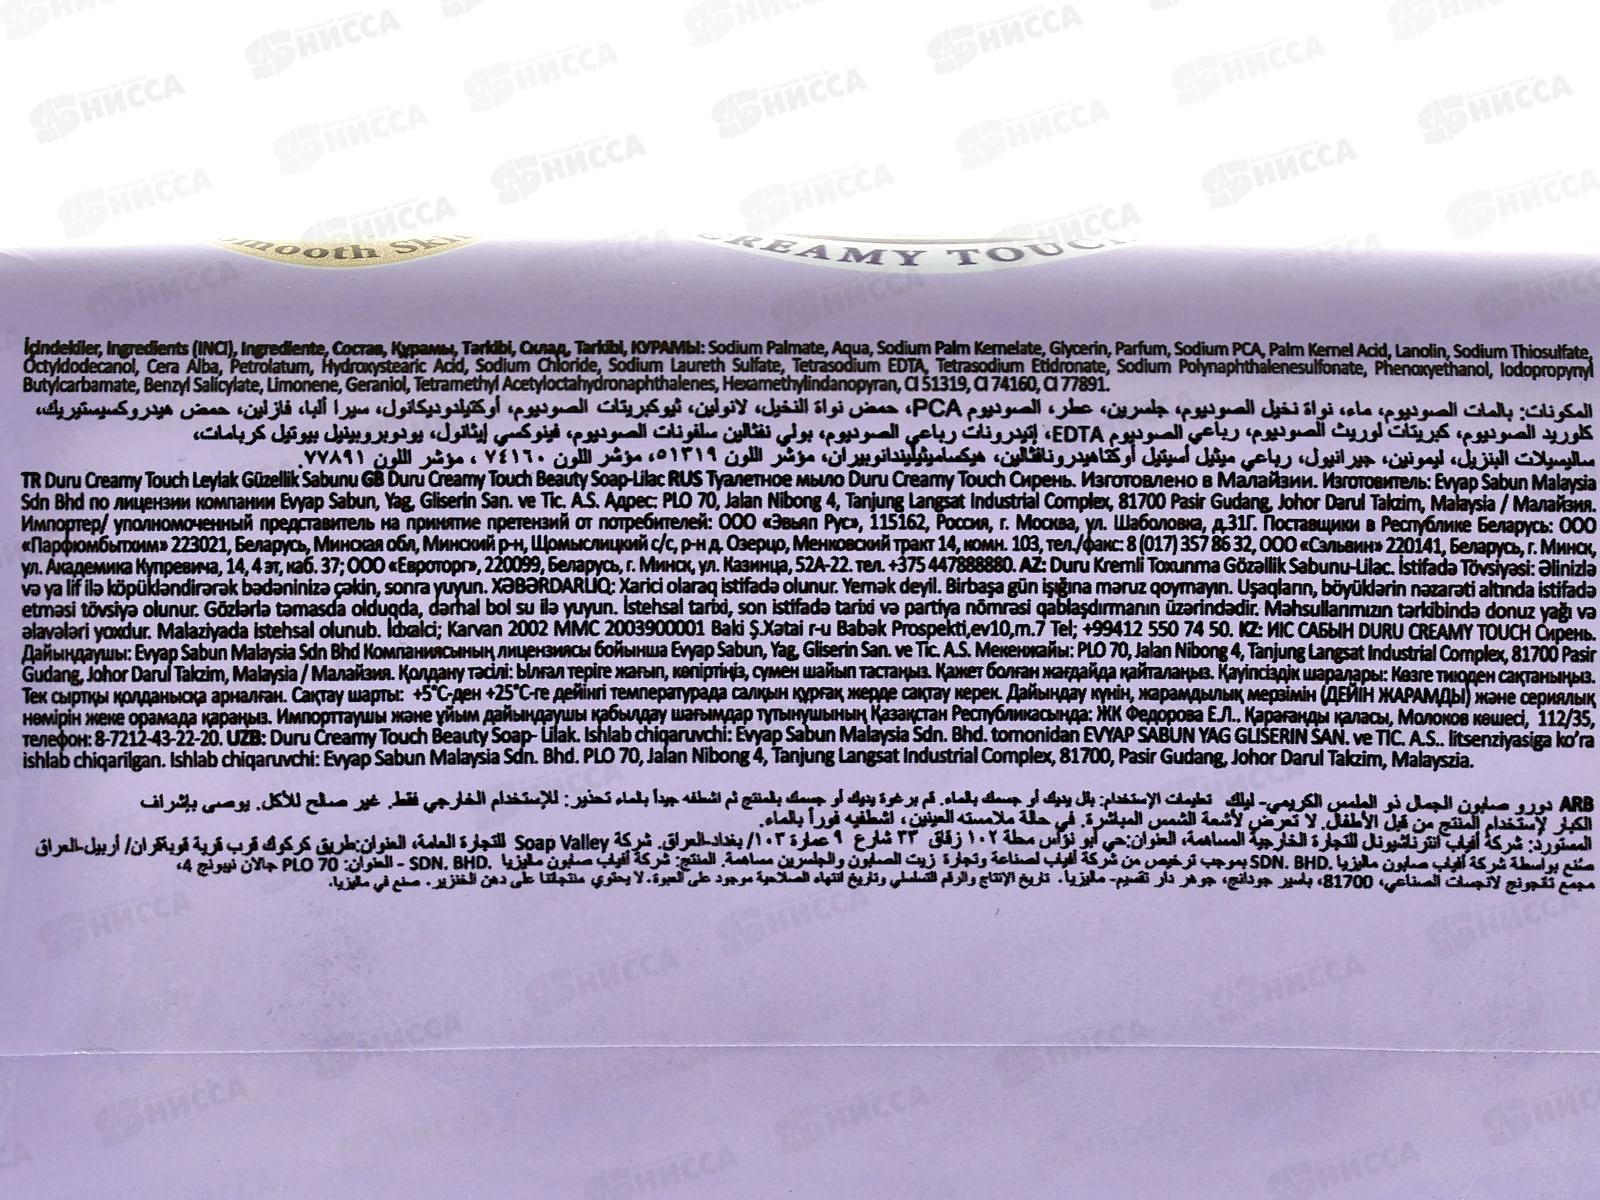 mooth Ski
CREAMY TOUCH
İçindekiler, Ingredients (INCI), Ingrediente, Состав, Құрамы, Tərkibi, Склад, Tarkibi, КУРАМЫ: Sodium Palmate, Aqua, Sodium Palm Kernelate, Glycerin, Parfum, Sodium PCA, Palm Kernel Acid, Lanolin, Sodium Thiosulfate,
Octyldodecanol, Cera Alba, Petrolatum, Hydroxystearic Acid, Sodium Chloride, Sodium Laureth Sulfate, Tetrasodium EDTA, Tetrasodium Etidronate, Sodium Polynaphthalenesulfonate, Phenoxyethanol, Iodopropynyl
Butylcarbamate, Benzyl Salicylate, Limonene, Geraniol, Tetramethyl Acetyloctahydronaphthalenes, Hexamethylindanopyran, CI 51319, CI 74160, CI 77891.
المكونات: بالمات الصوديوم، ماء، نواة نخيل الصوديوم، جلسرين، عطر، الصوديوم PCA، حمض نواة النخيل، لانولين، ثيوكبريتات الصوديوم، أوكتيلدوديكانول، سيرا ألبا، فازلين، حمض هيدروكسيستيريك،
كلوريد الصوديوم، كبريتات لوريث الصوديوم، رباعي الصوديوم EDTA، إتيدرونات رباعي الصوديوم، بولي نفثالين سلفونات الصوديوم، فينوكسي إيثانول، يودوبروبينيل بيوتيل كربامات،
ساليسيلات البنزيل، ليمونين، جيرانيول، رباعي ميثيل أسيتيل أوكتاهيدرونافثالين، هيكساميثيليندانوبيران، مؤشر اللون ٥١٣١٩، مؤشر اللون ٧٤١٦٠ ، مؤشر اللون ٧٧٨٩١.
TR Duru Creamy Touch Leylak Güzellik Sabunu GB Duru Creamy Touch Beauty Soap-Lilac RUS Туалетное мыло Duru Creamy Touch Сирень. Изготовлено в Малайзии. Изготовитель: Evyap Sabun Malaysia
Sdn Bhd по лицензии компании Evyap Sabun, Yag, Gliserin San. ve Tic. A.S. Адрес: PLO 70, Jalan Nibong 4, Tanjung Langsat Industrial Complex, 81700 Pasir Gudang, Johor Darul Takzim, Malaysia / Малайзия.
Импортер/ уполномоченный представитель на принятие претензий от потребителей: ООО «Эвьяп Рус», 115162, Россия, г. Москва, ул. Шаболовка, д.31Г. Поставщики в Республике Беларусь: ООО
«Парфюмбытхим» 223021, Беларусь, Минская обл, Минский р-н, Щомыслицкий с/с, р-н д. Озерцо, Менковский тракт 14, комн. 103, тел./факс: 8 (017) 357 86 32, ООО «Сэльвин» 220141, Беларусь, г. Минск,
ул. Академика Купревича, 14, 4 эт, каб. 37; ООО «Евроторг», 220099, Беларусь, г. Минск, ул. Казинца, 52А-22. тел. +375 447888880. AZ: Duru Kremli Toxunma Gözəllik Sabunu-Lilac. İstifadə Tövsiyəsi: Əlinizlə
və ya lif ilə köpükləndirərək bədəninizə çəkin, sonra yuyun. XƏBƏRDARLIQ: Xarici olaraq istifadə olunur. Yemək deyil. Birbaşa gün işığına məruz qoymayın. Uşaqların, böyüklərin nəzarəti altında istifadə
etməsi tövsiyə olunur. Gözlərlə təmasda olduqda, dərhal bol su ilə yuyun. İstehsal tarixi, son istifadə tarixi və partiya nömrəsi qablaşdırmanın üzərindədir. Məhsullarımızın tərkibində donuz yağı və
əlavələri yoxdur. Malaziyada istehsal olunub. İdxalci; Karvan 2002 MMC 2003900001 Baki Ş.Xətai r-u Babək Prospekti,ev10,m.7 Tel; +99412 550 74 50. KZ: ИІС САБЫН DURU CREAMY TOUCH Сирень.
Дайындаушы: Evyap Sabun Malaysia Sdn Bhd Компаниясының лицензиясы бойынша Evyap Sabun, Yag, Gliserin San. ve Tic. A.S. Мекенжайы: PLO 70, Jalan Nibong 4, Tanjung Langsat Industrial Complex, 81700 Pasir
Gudang, Johor Darul Takzim, Malaysia / Малайзия. Қолдану тәсілі: Ылғал теріге жағып, көпіртіңіз, сумен шайып тастаңыз. Қажет болған жағдайда қайталаңыз. Қауіпсіздік шаралары: Көзге тиюден сақтаныңыз.
Тек сыртқы қолданысқа арналған. Сақтау шарты: +5°С-ден +25°С-ге дейінгі температурада салқын құрғақ жерде сақтау керек. Дайындау күнін, жарамдылық мерзімін (ДЕЙІН ЖАРАМДЫ) және сериялық
нөмірін жеке орамада қараңыз. Импорттаушы және ұйым дайындаушы қабылдау шағымдар тұтынушының Қазақстан Республикасында: ЖК Федорова Е.Л.. Қарағанды қаласы, Молоков көшесі, 112/35,
телефон: 8-7212-43-22-20. UZB: Duru Creamy Touch Beauty Soap- Lilak. Ishlab chiqaruvchi: Evyap Sabun Malaysia Sdn. Bhd. tomonidan EVYAP SABUN YAG GLISERIN SAN. ve TIC. A.S.. litsenziyasiga ko’ra
ishlab chiqarilgan. Ishlab chiqaruvchi: Evyap Sabun Malaysia Sdn. Bhd. PLO 70, Jalan Nibong 4, Tanjung Langsat Industrial Complex, 81700, Pasir Gudang, Johor Darul Takzim, Malayszia.
ARB دورو صابون الجمال ذو الملمس الكريمي- ليلك تعليمات الإستخدام: بلل يديك أو جسمك بالماء. قم برغوة يديك أو جسمك بالمنتج ثم اشطفه جيداً بالماء تحذير: للإستخدام الخارجي فقط. غير صالح للأكل. يوصى بإشراف
الكبار لإستخدام المنتج من قبل الأطفال. لا تعرض لأشعة الشمس المباشرة. في حالة ملامسته العينين، اشطفيه فوراً بالماء.
المستورد: شركة أفياب انترناشيونال للتجارة الخارجية المساهمة، العنوان:حي أبو نؤاس محلة ١٠٢ زقاق ٣٣ شارع ٩ عمارة ١٠٣/ بغداد-العراق. شركة Soap Valley للتجارة العامة، العنوان:طريق كركوك قرب قرية قويتقران/ أربيل-العراق
صنع بواسطة شركة أفياب صابون ماليزيا .SDN. BHD بموجب ترخيص من شركة أفياب لصناعة وتجارة زيت الصابون والجلسرين مساهمة. المنتج: شركة أفياب صابون ماليزيا .SDN. BHD - العنوان: PLO 70 جالان نيبونج 4،
مجمع تانجونج لانجسات الصناعي، 81700، باسير جودانج، جوهر دار تقسيم- ماليزيا. تاريخ الإنتاج والرقم التسلسلي وتاريخ انتهاء الصلاحية موجود على العبوة. لا يحتوي منتجاتنا على دهن الخنزير. صنع في ماليزيا.